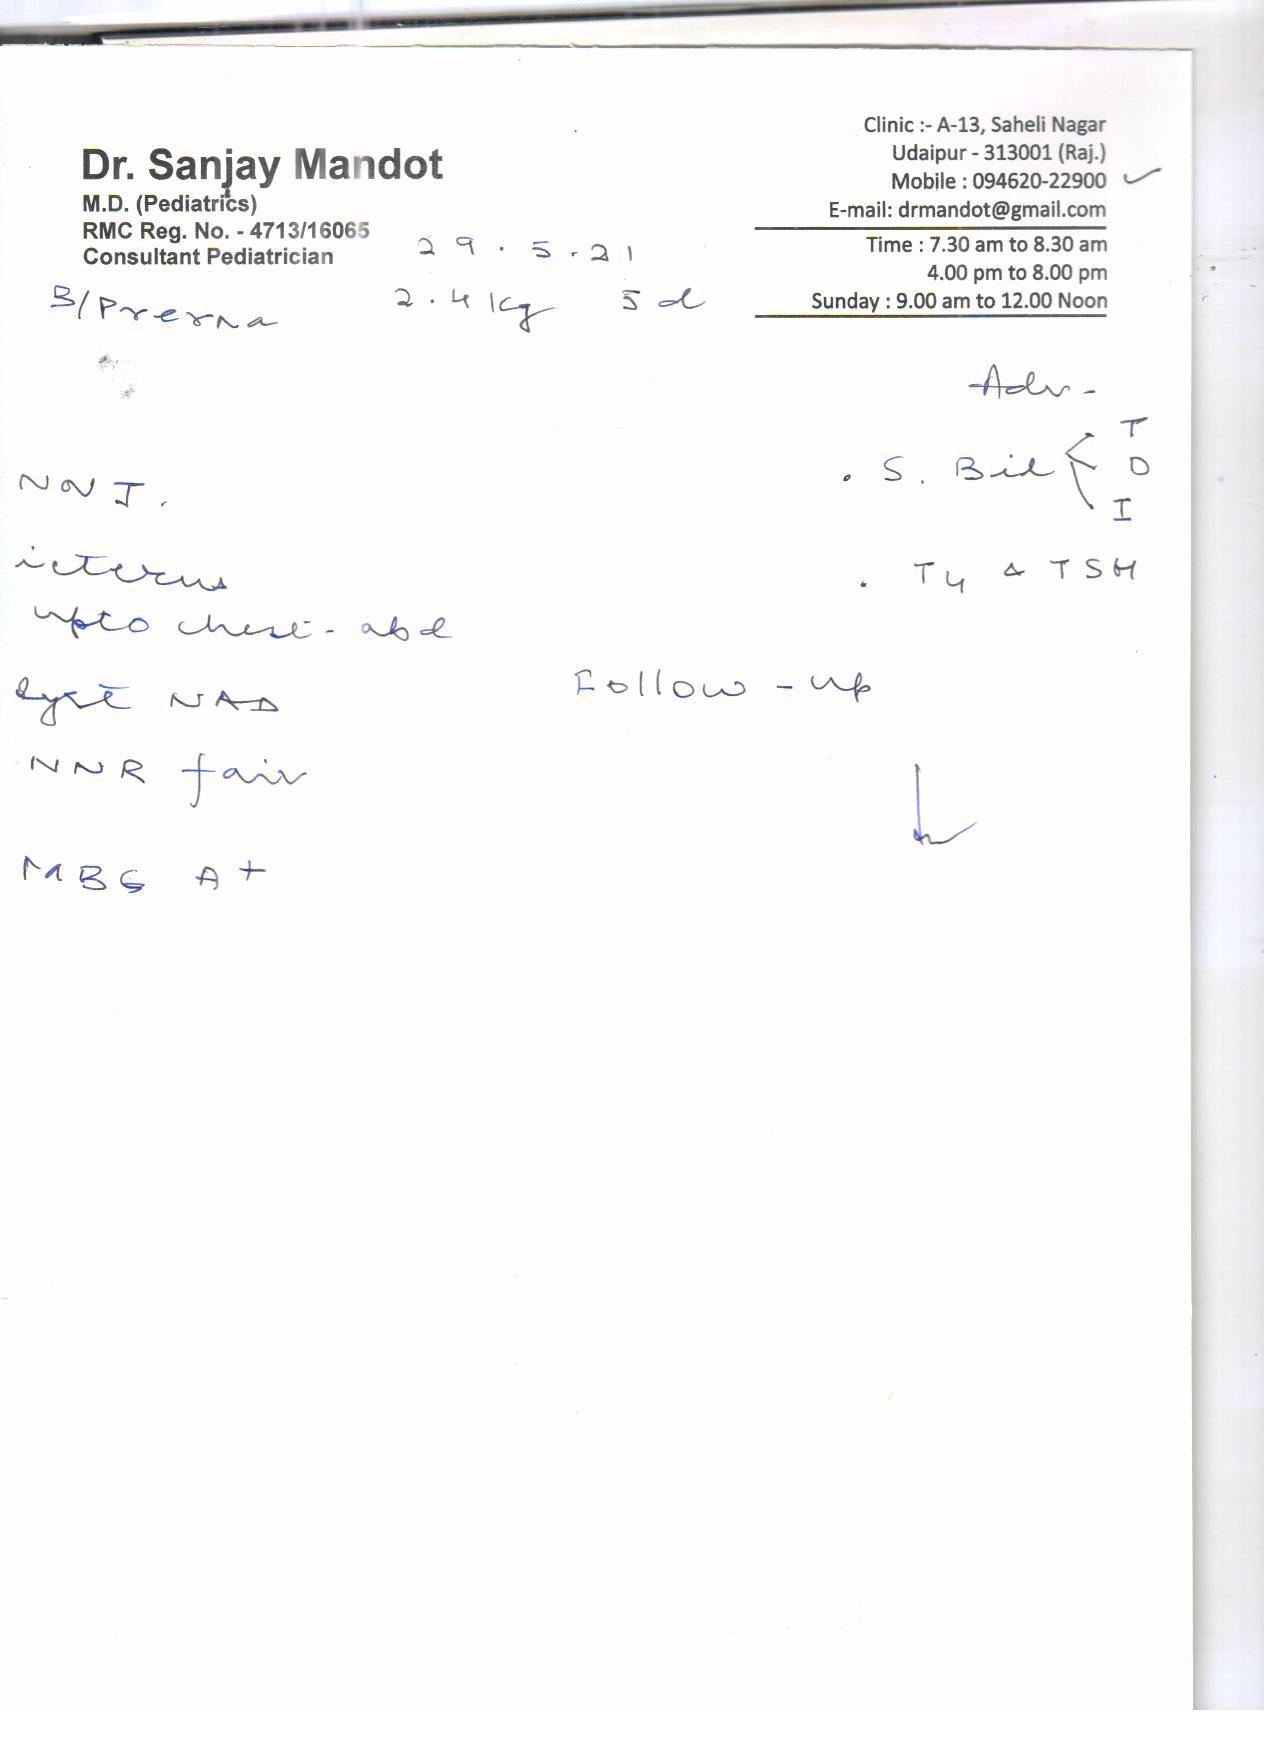 Dr. Sanjay Mandot
M.D. (Pediatrics)
RMC Reg. No. - 4713/16065
Consultant Pediatrician
Clinic :- A-13, Saheli Nagar
Udaipur - 313001 (Raj.)
Mobile : 094620-22900
E-mail: drmandot@gmail.com
Time : 7.30 am to 8.30 am
4.00 pm to 8.00 pm
Sunday : 9.00 am to 12.00 Noon
29.5.21
B/Prerna 2.4 kg 5 d
Adv-
. S. Bil T
D
I
. T4 & TSH
NNJ.
icterus
upto chest - abd
NAD
NNR fair
MBG A+
Follow-up